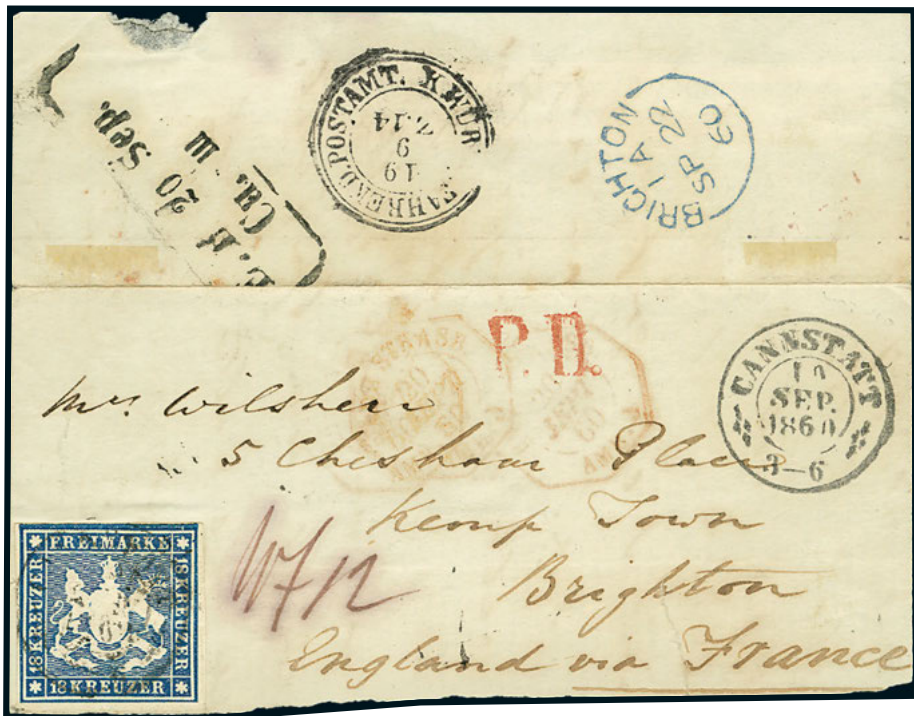 20 Sep.
III
Ca.
FAHREND. POSTAMT. K. WÜR
19
9
Z.14
BRIGHTON
1 A
SP 22
60
P.D.
CANNSTATT
SEP.
1860
3–6
Mrs Wilshere
5 Chesham Place
Kemp Town
Brighton
England via France
Wf12
FREIMARKE
18 KREUZER
18 KREUZER
18 KREUZER